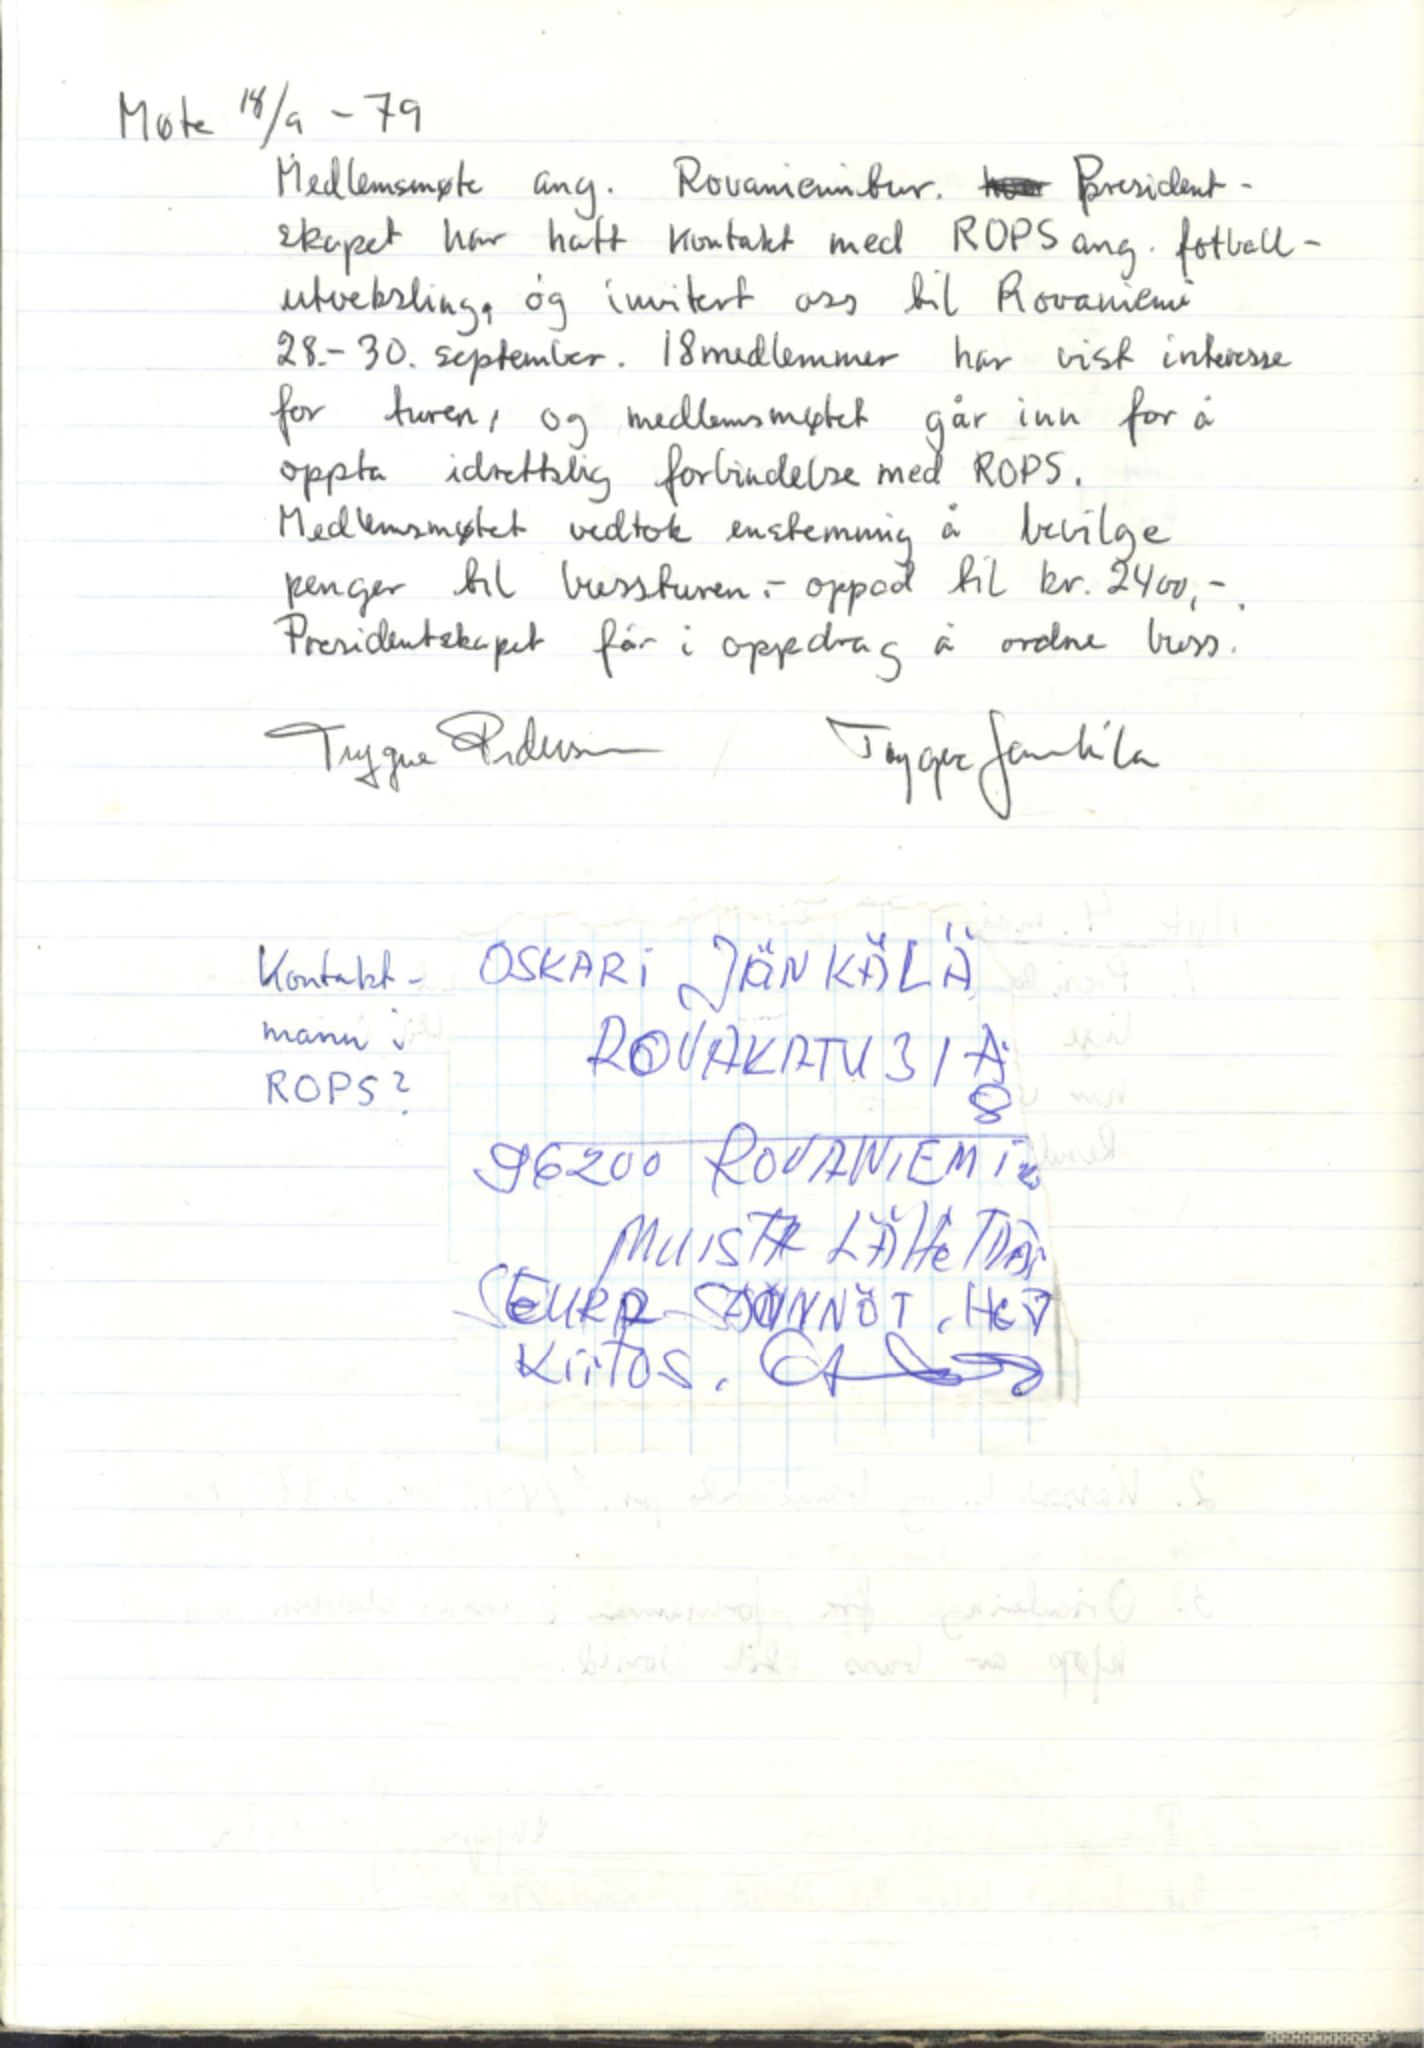 Møte 18/9 - 79
Medlemsmøte ang. Rovaniemitur. President-
skapet har hatt kontakt med ROPS ang. fotball-
utveksling, og invitert oss til Rovaniemi
28.- 30. september. 18 medlemmer har vist interesse
for turen, og medlemsmøtet går inn for å
oppta idrettslig forbindelse med ROPS.
Medlemsmøtet vedtok enstemmig å bevilge
penger til bussturen.- oppad til kr. 2400,-.
Presidentskapet får i oppdrag å ordne buss.
Trygve Pedersen Trygve Jankila
Kontakt-
mann i
ROPS?
OSKARI JÄNKÄLÄ
ROVAKATU 31 A
8
96200 ROVANIEMI
MUISTA LÄHETTÄÄ
SEURA SÄÄNNÖT. HETI
KiiTOS.